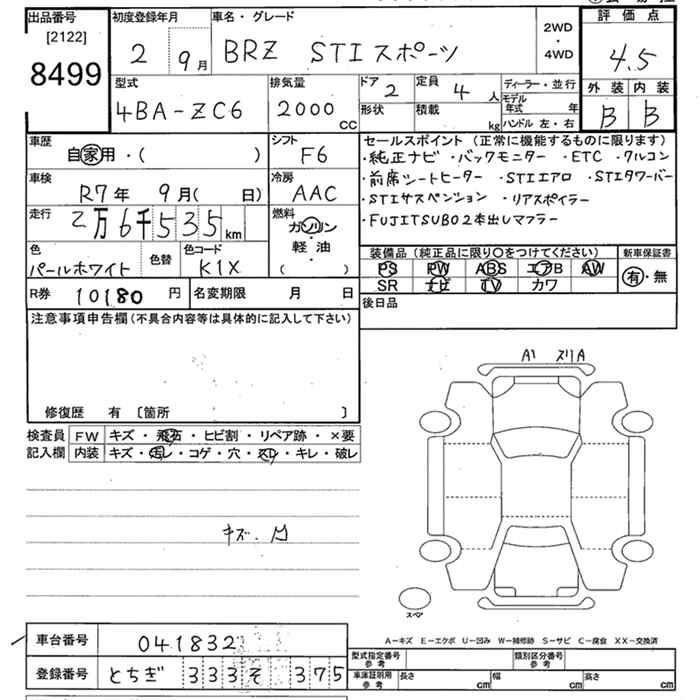 出品番号 初度登録年月 車名・グレード 評価点
[2122]
8499
2 9月 BRZ STIスポーツ
2WD
・
4WD
4.5
型式 排気量 ドア 2 定員 4 人 ディーラー・並行
4BA-ZC6 2000 CC
形状 積載 kg
モデル年式 年
ハンドル 左・右
外装 内装
B B
車歴 自家用・( )
シフト F6
車検 R7年 9月( 日)
冷房 AAC
走行 2万6千535km
燃料 ガソリン・軽油・( )
色 パールホワイト 色替 色コード K1X
セールスポイント (正常に機能するものに限ります)
・純正ナビ ・バックモニター ・ETC ・クルコン
・前席シートヒーター ・STIエアロ ・STIタワーバー
・STIサスペンション ・リアスポイラー
・FUJITSUBO2本出しマフラー
装備品 (純正品に限り○をつけてください) 新車保証書
PS PW ABS エアB AW 有・無
SR ナビ TV カワ
R券 10180 円 名変期限 月 日
後日品
注意事項申告欄 (不具合内容等は具体的に記入して下さい)
修復歴 有 〔箇所 〕
検査員 FW キズ・飛石・ヒビ割・リペア跡・×要
記入欄 内装 キズ・汚レ・コゲ・穴・スレ・キレ・破レ
A1 スリA
スペア
A－キズ E－エクボ U－凹み W－補修跡 S－サビ C－腐食 XX－交換済
車台番号 041832
登録番号 とちぎ 333 そ 375
型式指定番号 参考 類別区分番号 参考
車庫証明用 参考 長さ cm 幅 cm 高さ cm